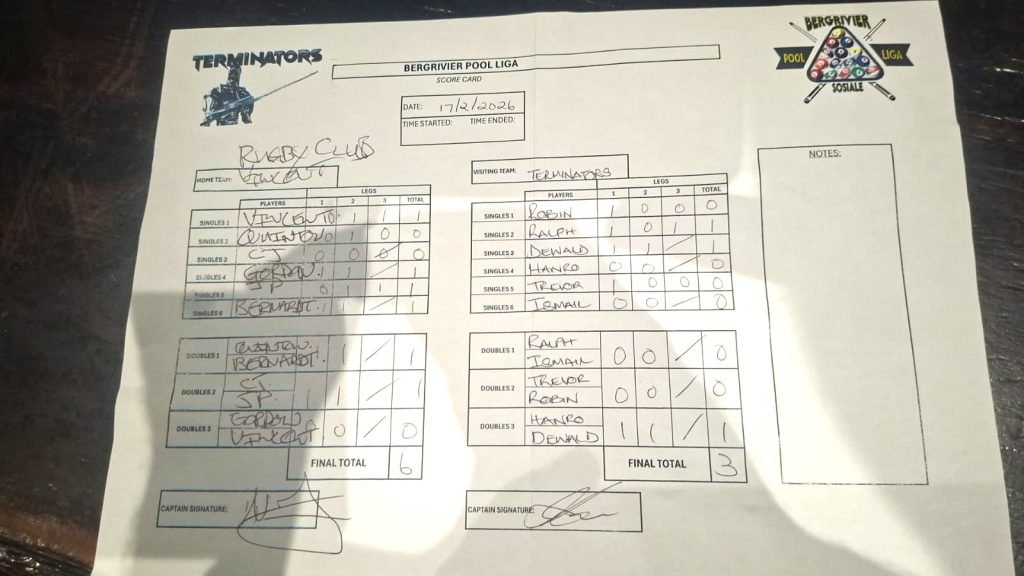 TERMINATORS
BERGRIVIER POOL LIGA
SCORE CARD
BERGRIVIER
POOL LIGA
SOSIALE
DATE: 17/2/2026
TIME STARTED: TIME ENDED:
RUGBY CLUB
HOME TEAM:
LEGS
PLAYERS 1 2 3 TOTAL
SINGLES 1 VINCENT 0 1 1 1
SINGLES 2 QUINTON 0 1 0 0
SINGLES 3 CJ 0 0 0
SINGLES 4 GORDON 1 1 / 1
SINGLES 5 JP 0 1 1 1
SINGLES 6 BERNARDT 1 1 / 1
DOUBLES 1 QUINTON
BERNARDT 1 1 / 1
DOUBLES 2 CJ
JP 1 1 / 1
DOUBLES 3 GORDON
VINCENT 0 / 0
FINAL TOTAL 6
CAPTAIN SIGNATURE:
VISITING TEAM: TERMINATORS
LEGS
PLAYERS 1 2 3 TOTAL
SINGLES 1 ROBIN 1 0 0 0
SINGLES 2 RALPH 1 0 1 1
SINGLES 3 DEWALD 1 1 / 1
SINGLES 4 HANRO 0 0 / 0
SINGLES 5 TREVOR 1 0 0 0
SINGLES 6 ISMAIL 0 0 / 0
DOUBLES 1 RALPH
ISMAIL 0 0 / 0
DOUBLES 2 TREVOR
ROBIN 0 0 / 0
DOUBLES 3 HANRO
DEWALD 1 1 / 1
FINAL TOTAL 3
CAPTAIN SIGNATURE:
NOTES: